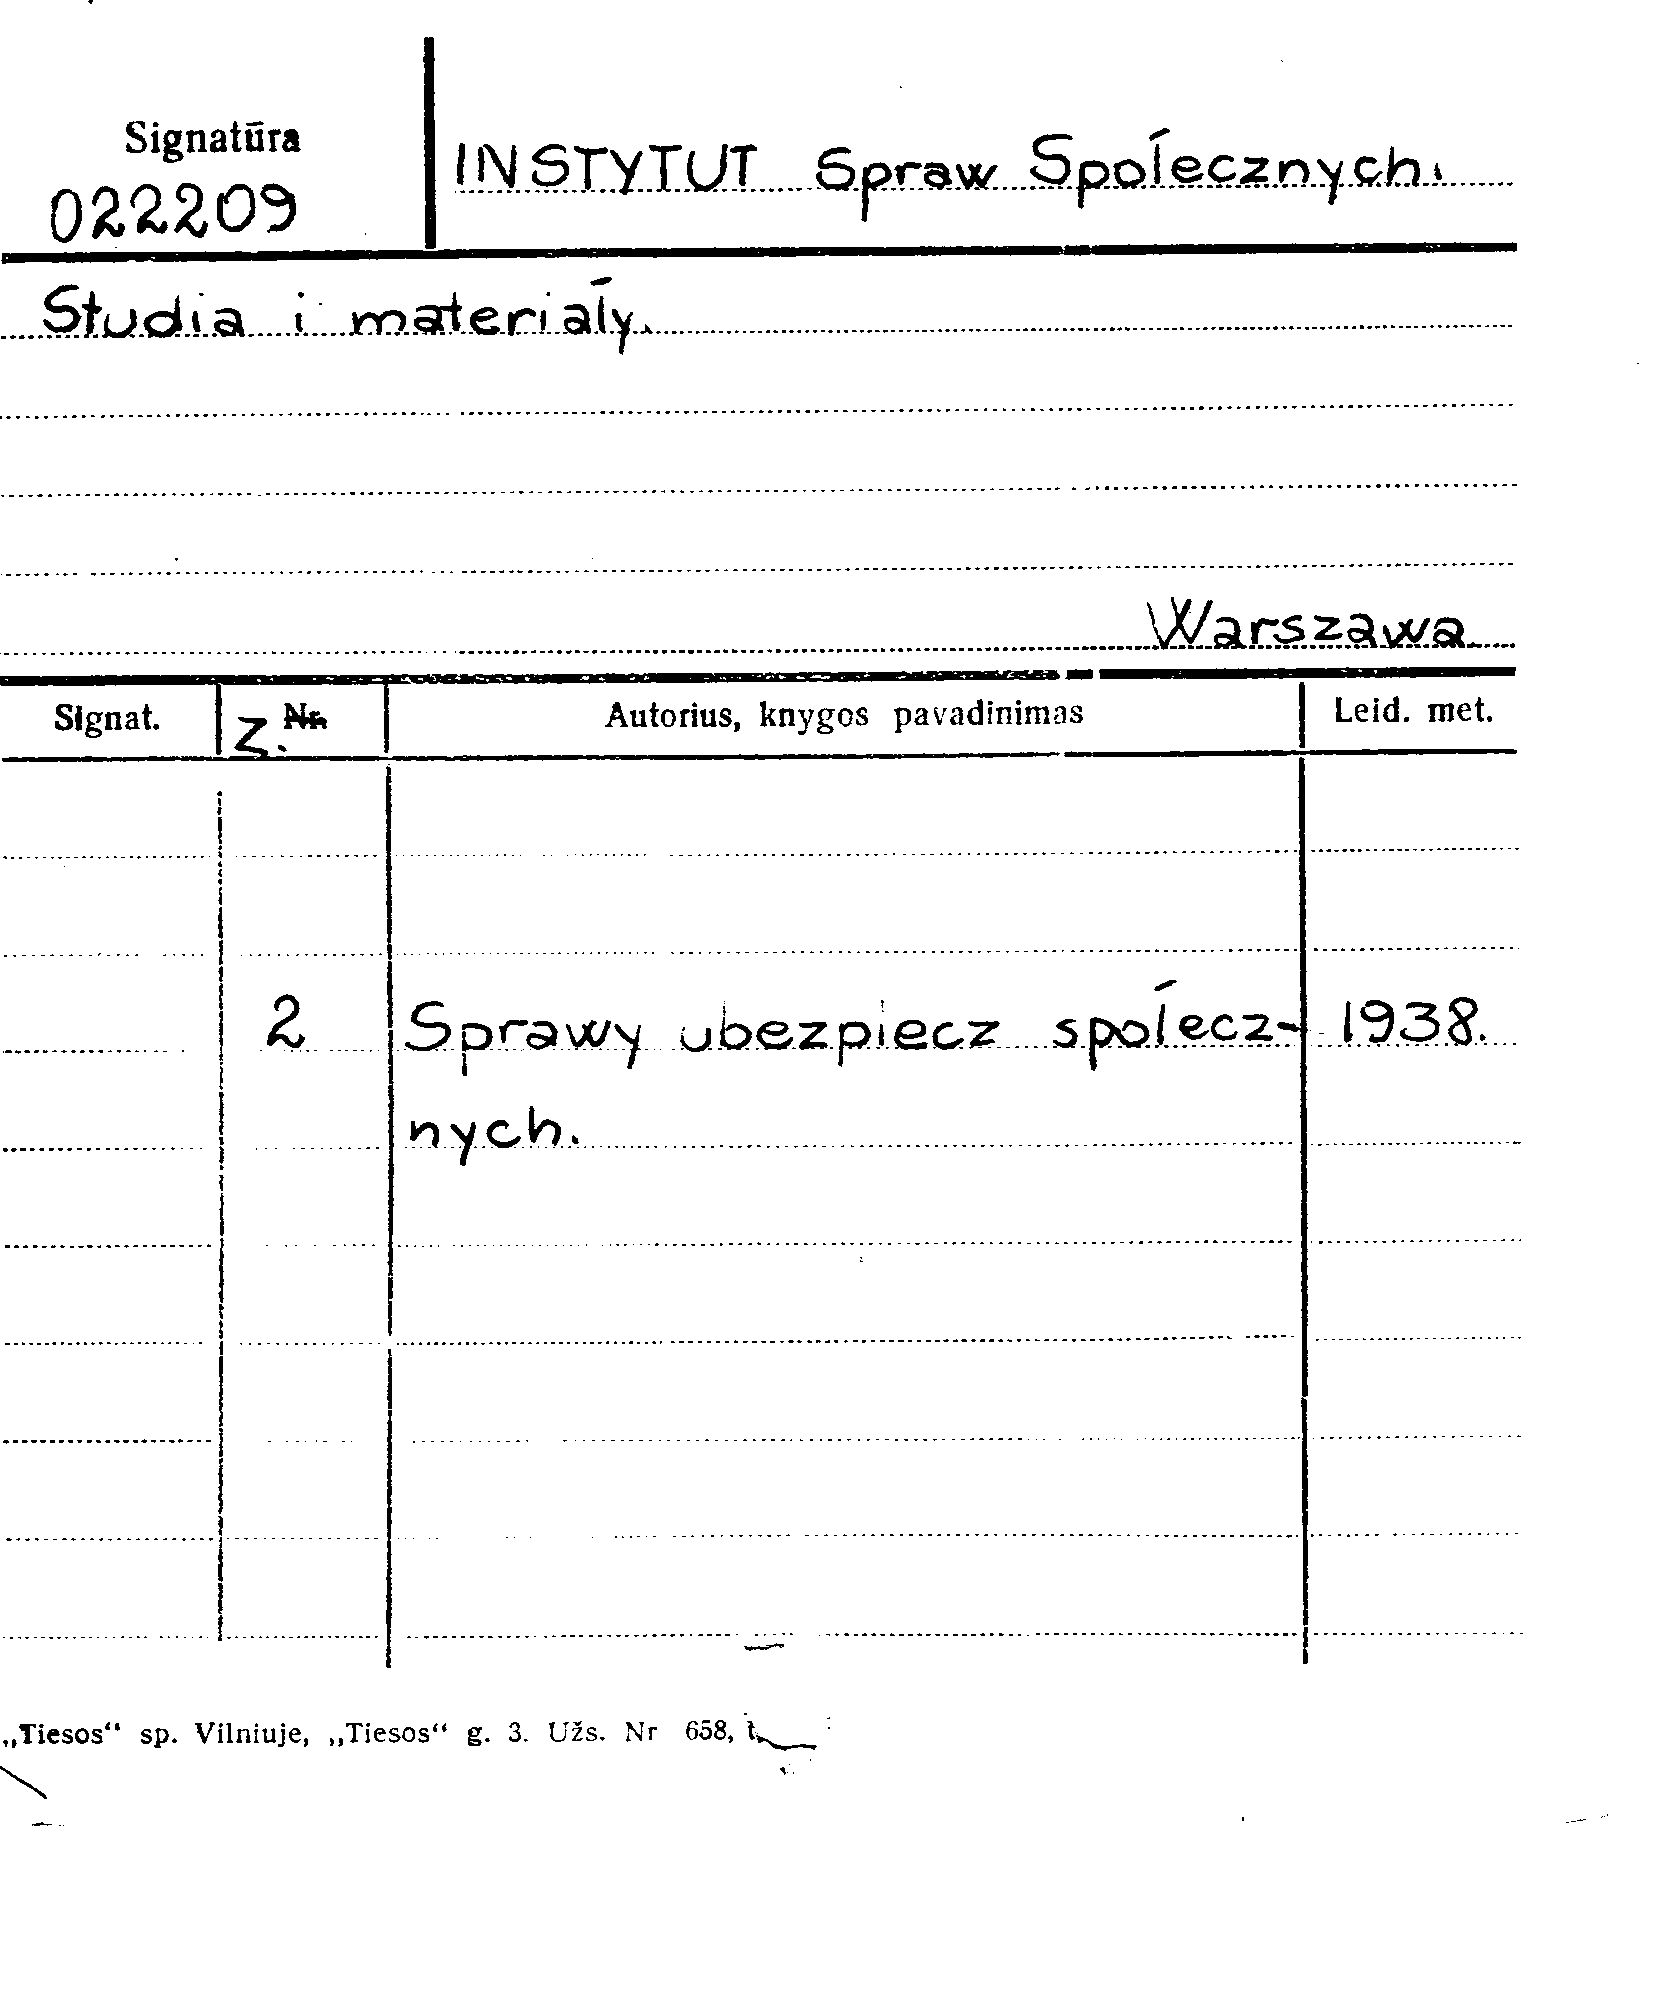 Signatūra
022209
INSTYTUT Spraw Społecznych.
Studia i materiały.
Warszawa
Signat. Z. Nr. Autorius, knygos pavadinimas Leid. met.
2 Sprawy ubezpiecz społecz- 1938.
nych.
„Tiesos“ sp. Vilniuje, „Tiesos“ g. 3. Užs. Nr 658,